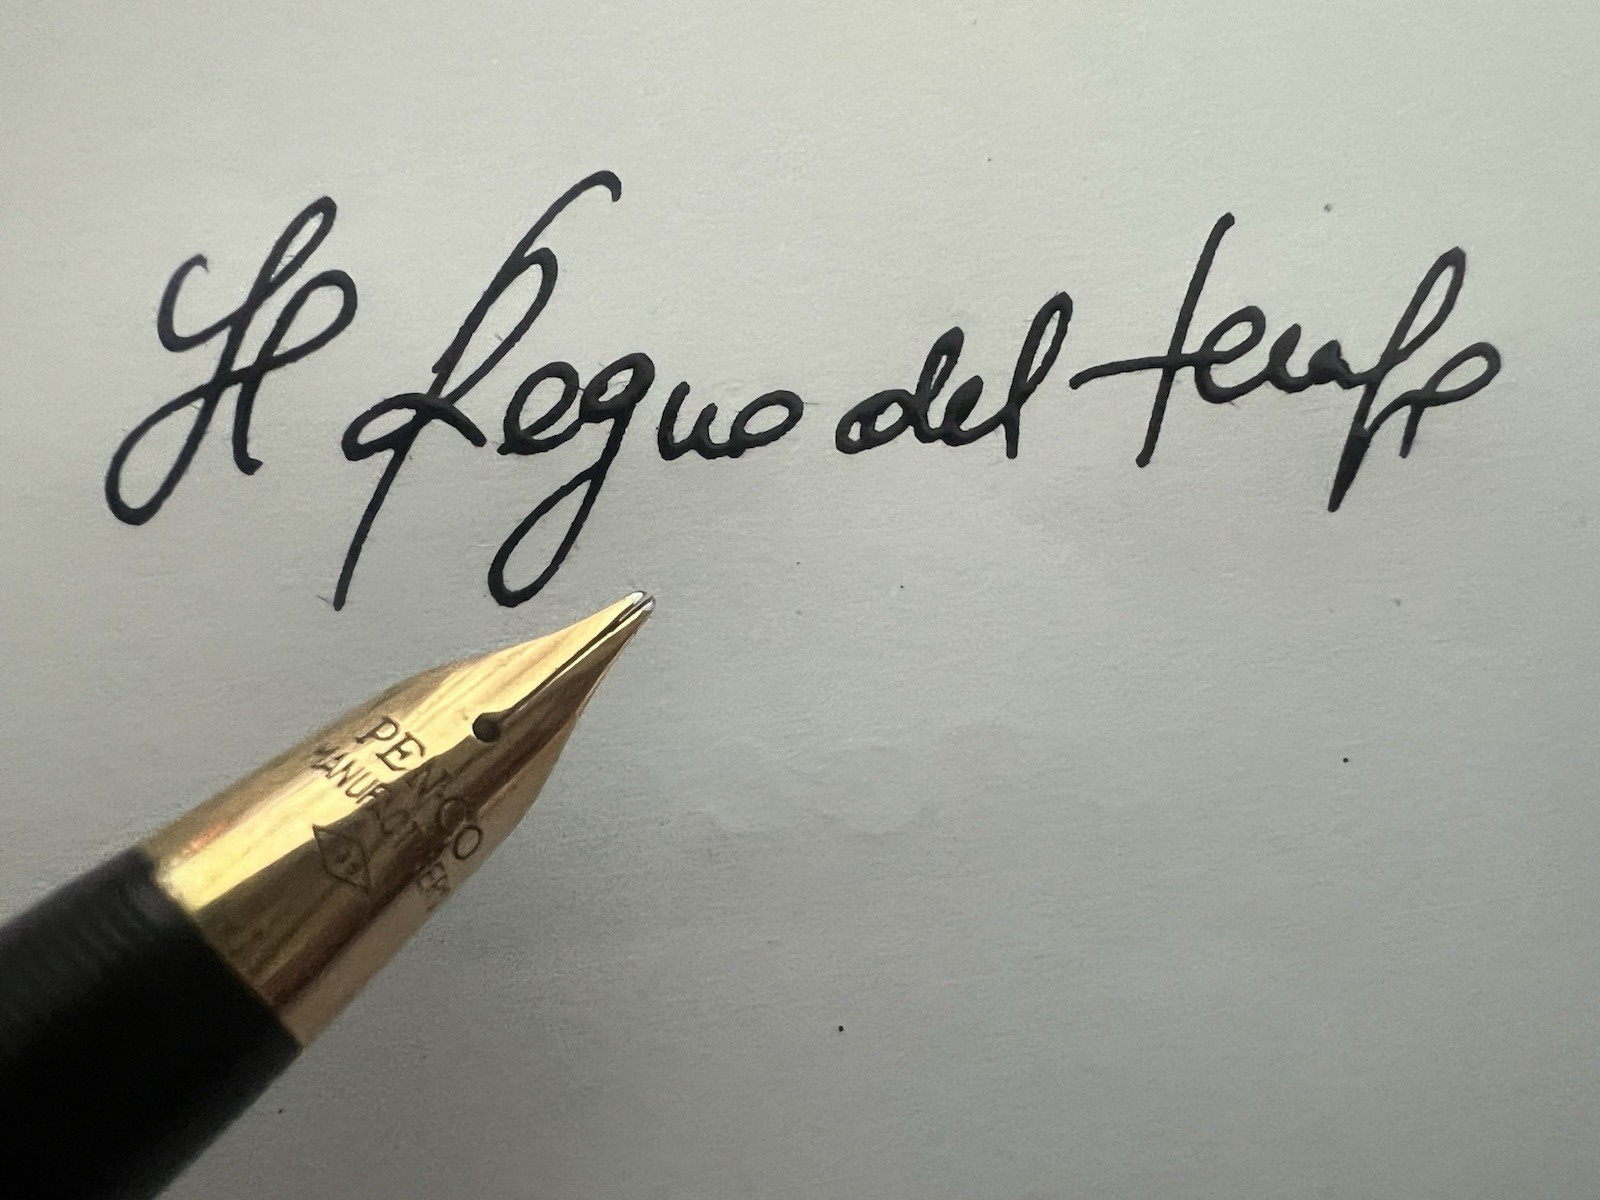 Il Regno del tempo
PENCO
MANUFACT
18